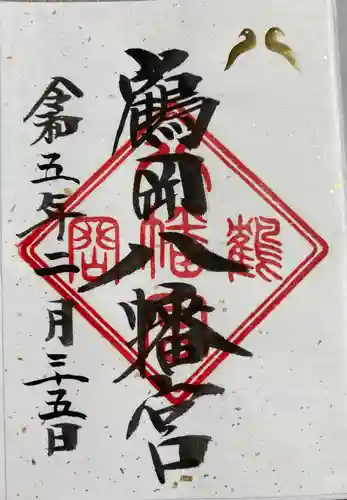 鶴岡八幡宮
令和五年二月二十五日
鶴
八幡宮
岡